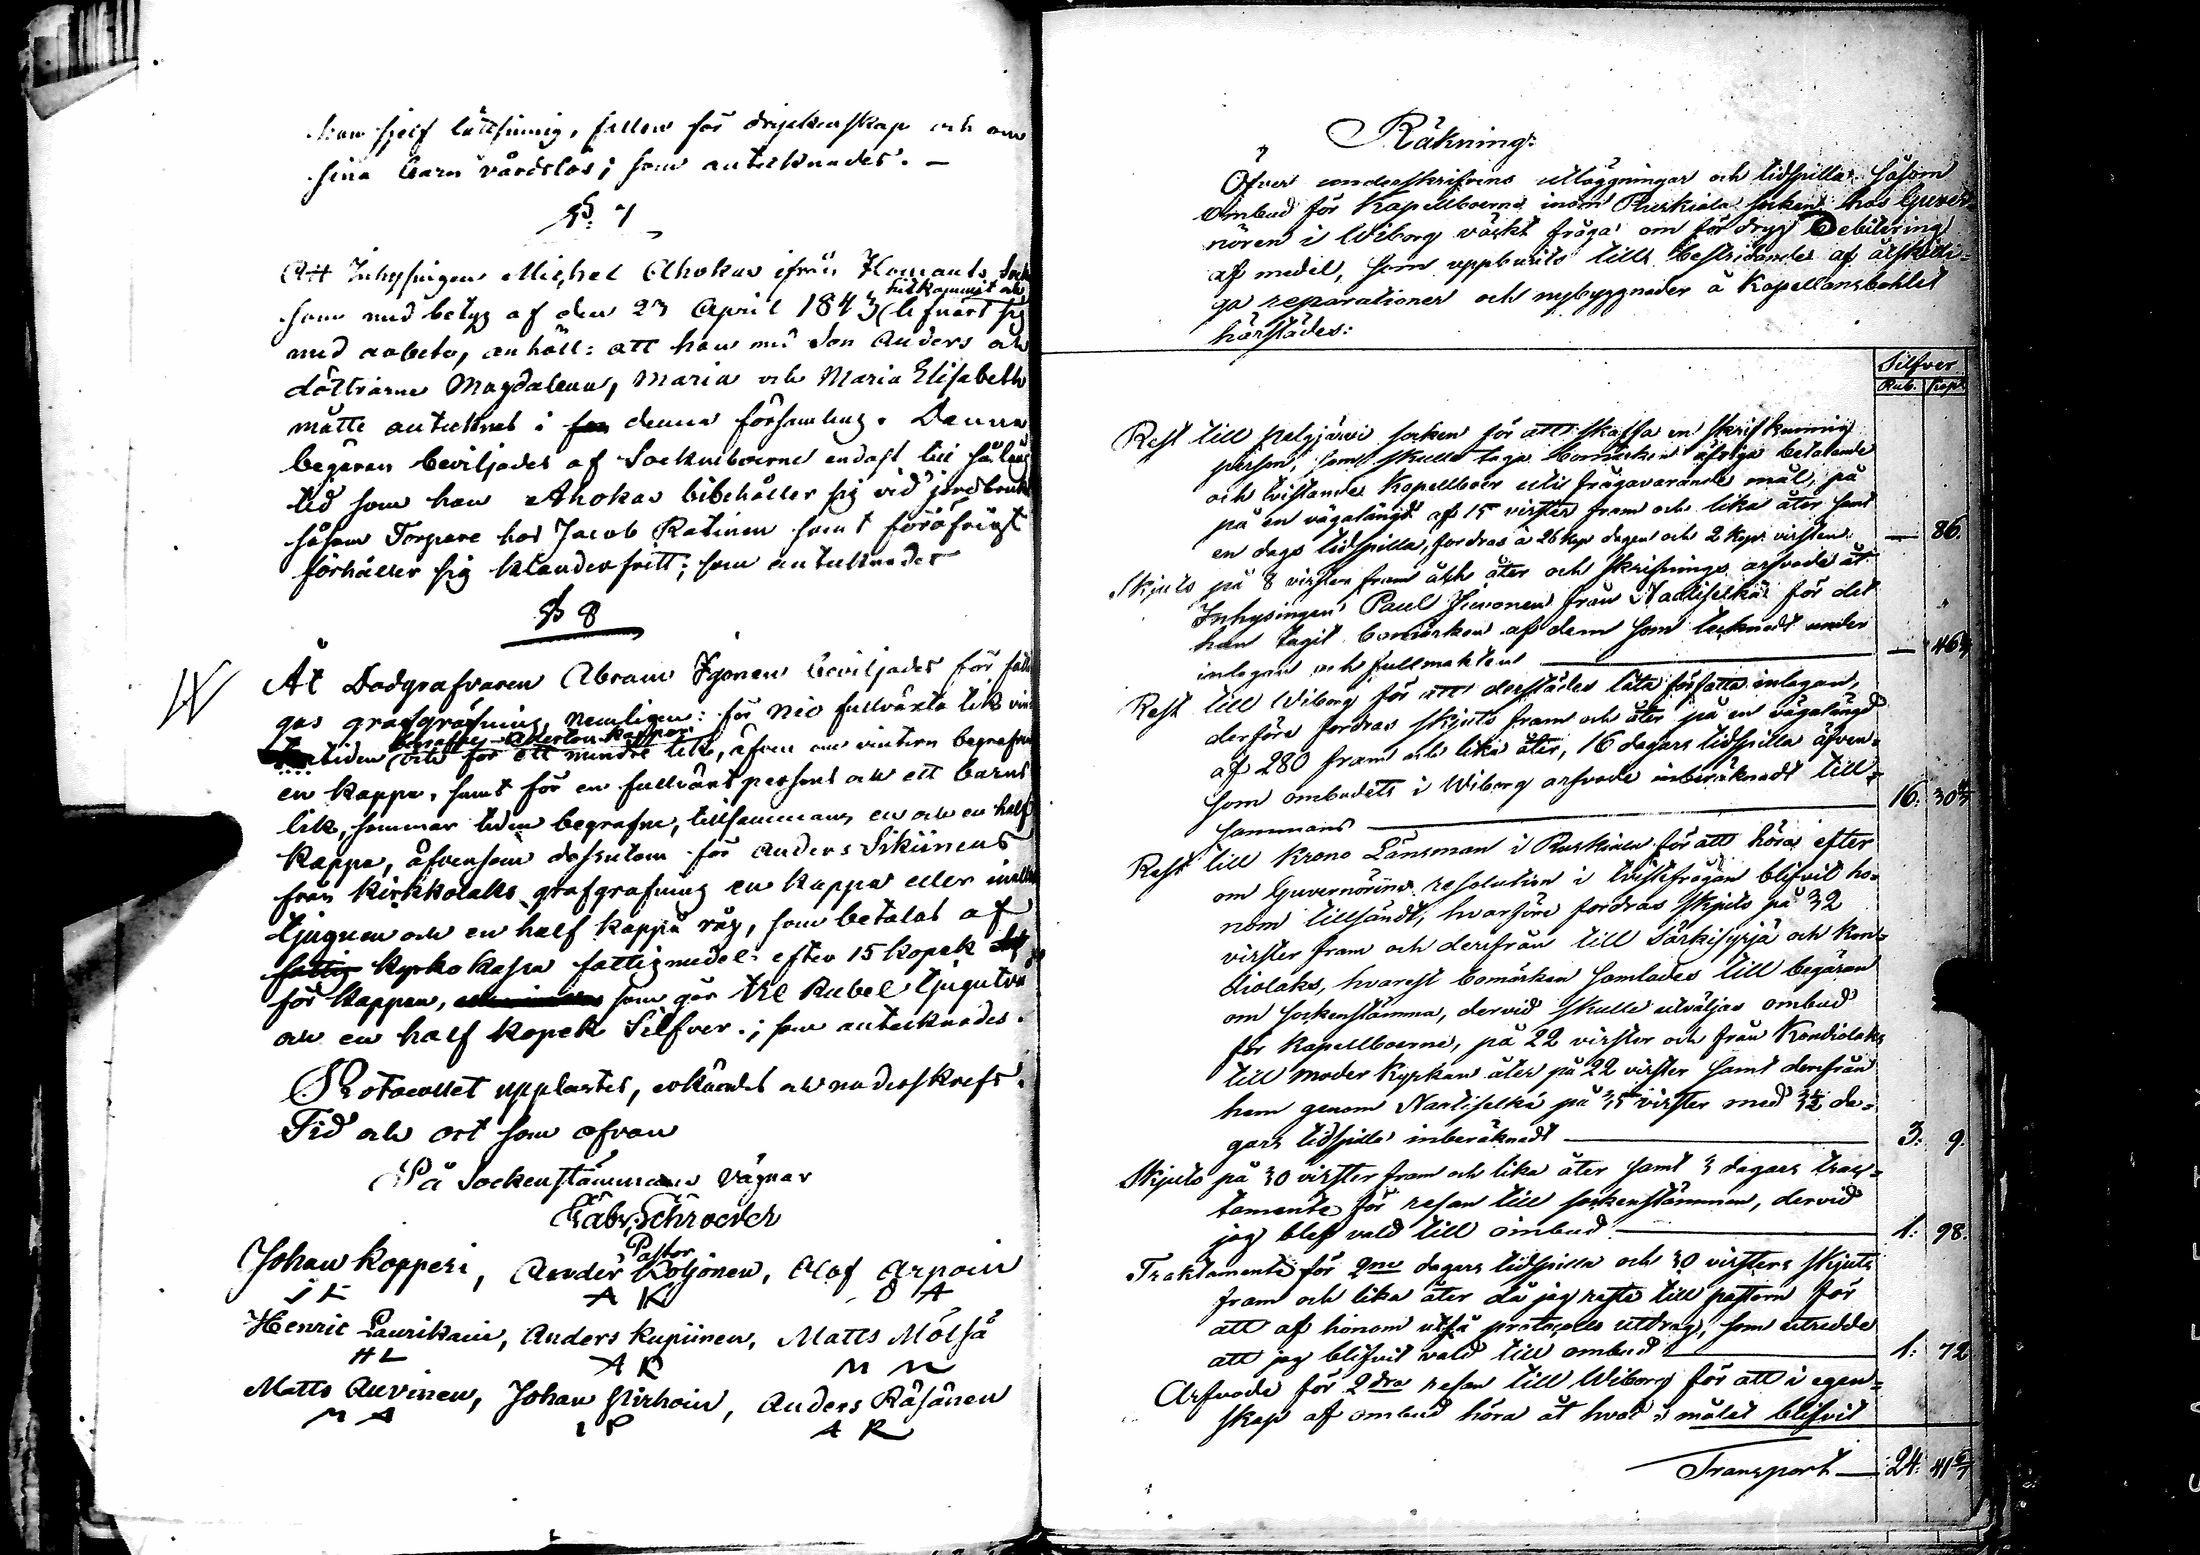 han sjelf lättsinnig, fallen för dryckenskap och om
sina barn vårdslös; som antecknades. —
§. 7
Att Inhysingen Michel Ahokas ifrån Ilomants Sock
hitkommit och
som med betyg af den 23 April 1843 lifnärt sig
med arbete, anhöll: att han med son Anders och
döttrarne Magdalena, Maria och Maria Elisabeth
måtte antecknas i denna församling. Denna
begäran beviljades af Sockneboerne endast till så lång
tid som han Ahokas bibehåller sig vid jordbruk
såsom Torpare hos Jacob Ratinen samt föröfrigt
förhåller sig klanderfritt; som antecknades
§ 8
Åt Dödgrafvaren Abram Igonen beviljades för fatti
gas grafgräfning, nemligen: för nio fullväxta lik vin
begrafne aderton kappar
tertiden och för ett mindre lik, äfven om vintern begrafne
en kappa, samt för en fullväxt person och ett barns
lik, sommar tiden begrafne, tillsammans en och en half
kappa, äfvensom dessutom för Anders Sikiinens
från Kirkkolaks grafgrafning en kappa eller inalles
tjuguen och en half kappa råg, som betalas af
fattig kyrko kassa fattigmedel efter 15 kopek
för kappen, som gör tre Rubel tjugutvå
och en half kopek Silfver.; som antecknades.
Protocollet upplästes, erkändes och underskrefs.
Tid och ort som ofvan
På Sockenstämmans vägnar
Gabr. Schroeder
Pastor
Johan Kopperi, Anders Kotjonen, Olof Arpoin
J K A K O A
Henric Laurikain, Anders Kupiinen, Matts Mölsä
H L A K M M
Matts Auvinen, Johan Pirhoin, Anders Räsänen
M A I P A R
Räkning:
Öfver underskrifvens utläggningar och tidspillan såsom
ombud för Kapellboerne inom Ruskiala socken hos Guver-
nören i Wiborg väckt fråga om för dryg Debitering
af medel, som uppburits till bestridande af åtskilli-
ga reparationer och nybyggnader å Kapellansbohlet
härstädes:
Silfver
Rub. Kop.
Rest till Pelgjärvi socken för att skaffa en skrifkunnig
person, som skulle taga bomärken äfriga betalande
och tvistande Kapellboer uti frågavarande mål, på
på en vägalängd af 15 virster fram och lika åter samt
en dags tidspillan, fordras à 26 kop dagen och 2 kop. virsten. — 86.
Skjuts på 8 virster fram och åter och skrifnings arfvode åt
Inhysingen Paul Simonen från Naatiselkä för det
han tagit bomärken af dem som tecknadt under
inlagan och fullmakten — 46 4/7
Rest till Wiborg för att derstädes låta författa inlagan,
derföre fordras skjuts fram och åter på en vägalängd
af 280 fram och lika åter, 16 dagars tidspillan äfven-
som ombudets i Wiborg arfvode inberäknadt till-
sammans 16. 30 4/7
Rest till Krono Länsman i Ruskiala för att höra efter
om Guvernörens resolution i tvistefrågan blifvit ho-
nom tillsändt, hvarföre fordras skjuts på 32
virster fram och derifrån till Särkisyrjä och Kon-
diolaks, hvarest bomärken samlades till begäran
om sockenstämma, dervid skulle utväljas ombud
för Kapellboerne, på 22 virster och från Kondiolaks
till moder Kyrkan åter på 22 virster samt derifrån
hem genom Naatiselkä på 35 virster med 3 1/2 da-
gars tidspillan inberäknadt 3. 9.
Skjuts på 30 virster fram och lika åter samt 3 dagars trac-
tamente för resan till sockenstämman, dervid
jag blef vald till ombud 1. 98.
Traktamente för 2ne dagars tidspillan och 30 virsters skjuts
fram och lika åter då jag reste till pastorn för
att af honom utfå protocolls utdrag, som utredde
att jag blifvit vald till ombud 1. 72
Arfvode för 2dra resan till Wiborg för att i egen-
skap af ombud höra åt hvad i målet blifvit
Transport — 24. 41 5/7